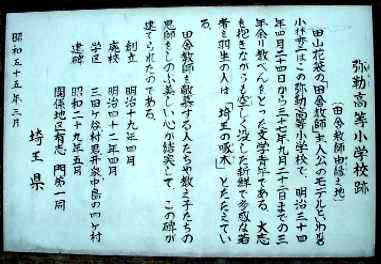 弥勒高等小学校跡
(田舎教師由緒之地)
田山花袋の「田舎教師」主人公のモデルといわれる
小林秀三はこの弥勒高等小学校で、明治三十四
年四月二十四日から三十七年九月二十二日までの三
年余り教べんをとった文学青年である。大志
を抱きながらも空しく没した新鮮で多感な若
者を羽生の人は「埼玉の啄木」とたたえてい
る。
田舎教師を敬慕する人たちや教え子たちの
恩師をしのぶ美しい心が結実して、この碑が
建てられたのである。
創立 明治十九年四月
廃校 明治四十二年四月
学区 三田ヶ谷村 中島の四ヶ村
建碑 昭和二十九年五月
関係地区有志 門弟一同
昭和五十五年三月
埼玉県